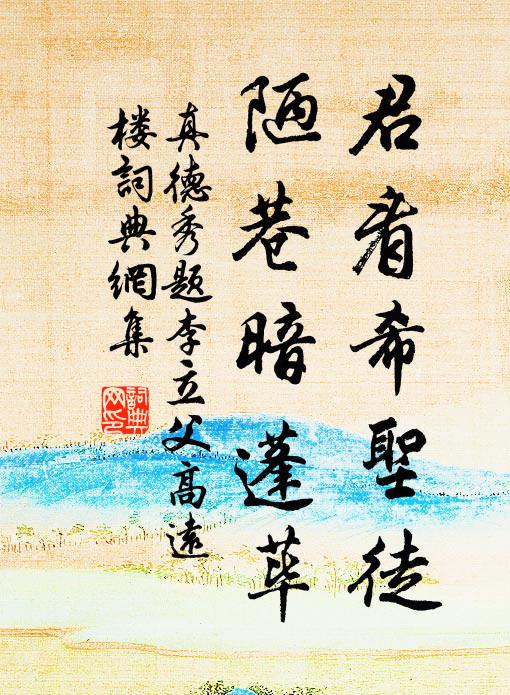 君看希聖徒
陋巷暗蓬蓽
真德秀題李立父高遠
楼詞典網集
詞典
网印